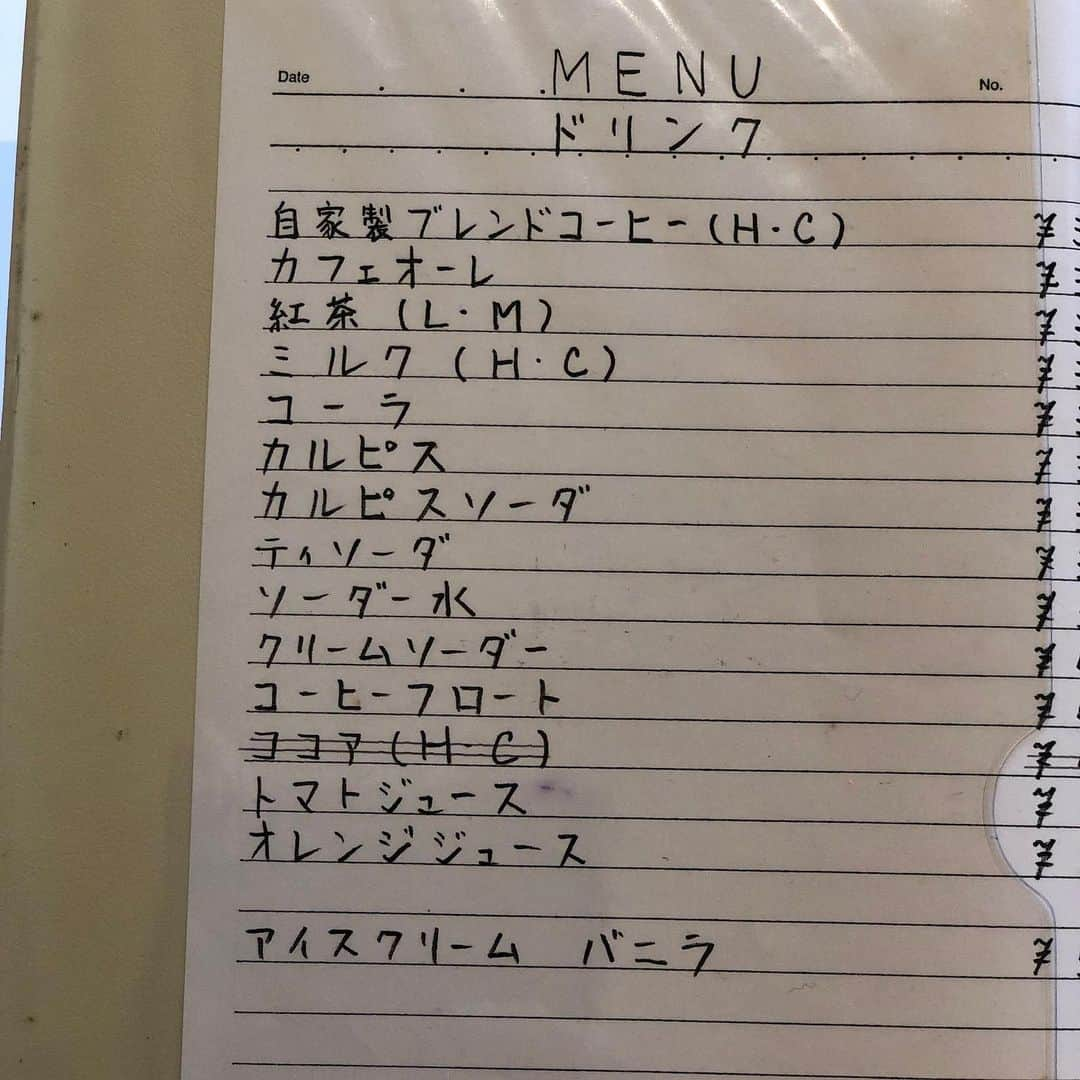 Date MENU No.
ドリンク
自家製ブレンドコーヒー(H・C) ¥
カフェオーレ ¥
紅茶 (L・M) ¥
ミルク (H・C) ¥
コーラ ¥
カルピス ¥
カルピスソーダ ¥
ティソーダ ¥
ソーダー水 ¥
クリームソーダー ¥
コーヒーフロート ¥
ココア(H・C) ¥
トマトジュース ¥
オレンジジュース ¥
アイスクリーム バニラ ¥